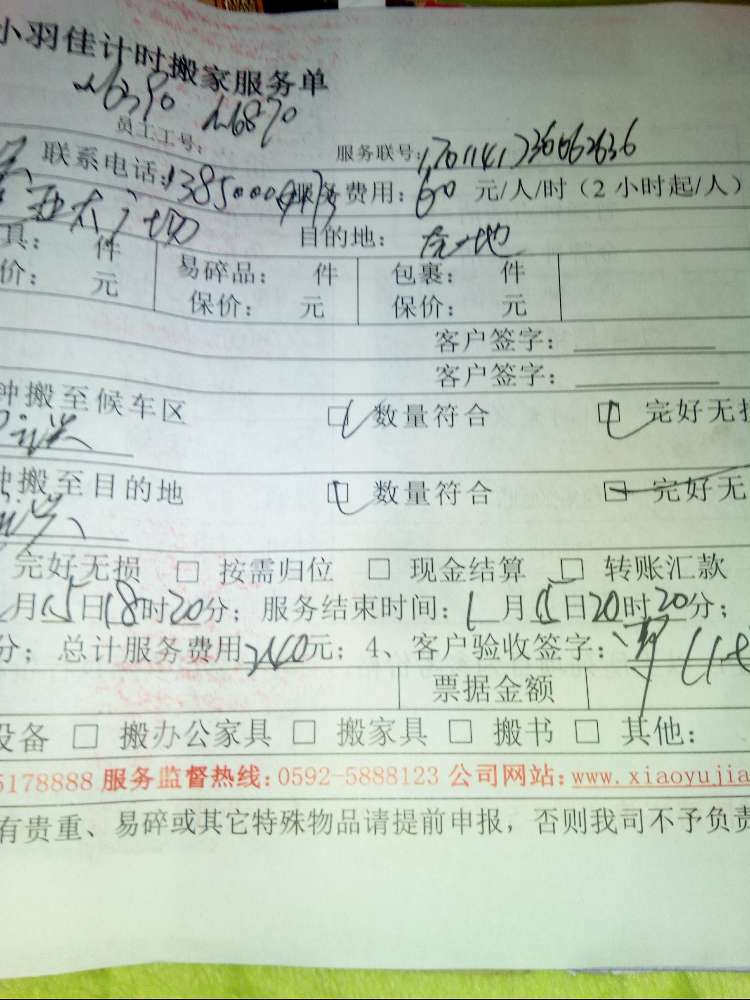 小羽佳计时搬家服务单
员工工号：
服务联号：
联系电话： 费用：60 元/人/时（2小时起/人）
目的地：
具： 件 易碎品： 件 包裹： 件
价： 元 保价： 元 保价： 元
客户签字：
客户签字：
钟搬至候车区 □ 数量符合 □ 完好无
钟搬至目的地 □ 数量符合 □ 完好无
完好无损 □ 按需归位 □ 现金结算 □ 转账汇款
月15日18时20分；服务结束时间：1月15日20时20分；
分；总计服务费用240元；4、客户验收签字：
票据金额
设备 □ 搬办公家具 □ 搬家具 □ 搬书 □ 其他：
5178888 服务监督热线：0592-5888123 公司网站：www.xiaoyujia
有贵重、易碎或其它特殊物品请提前申报，否则我司不予负责